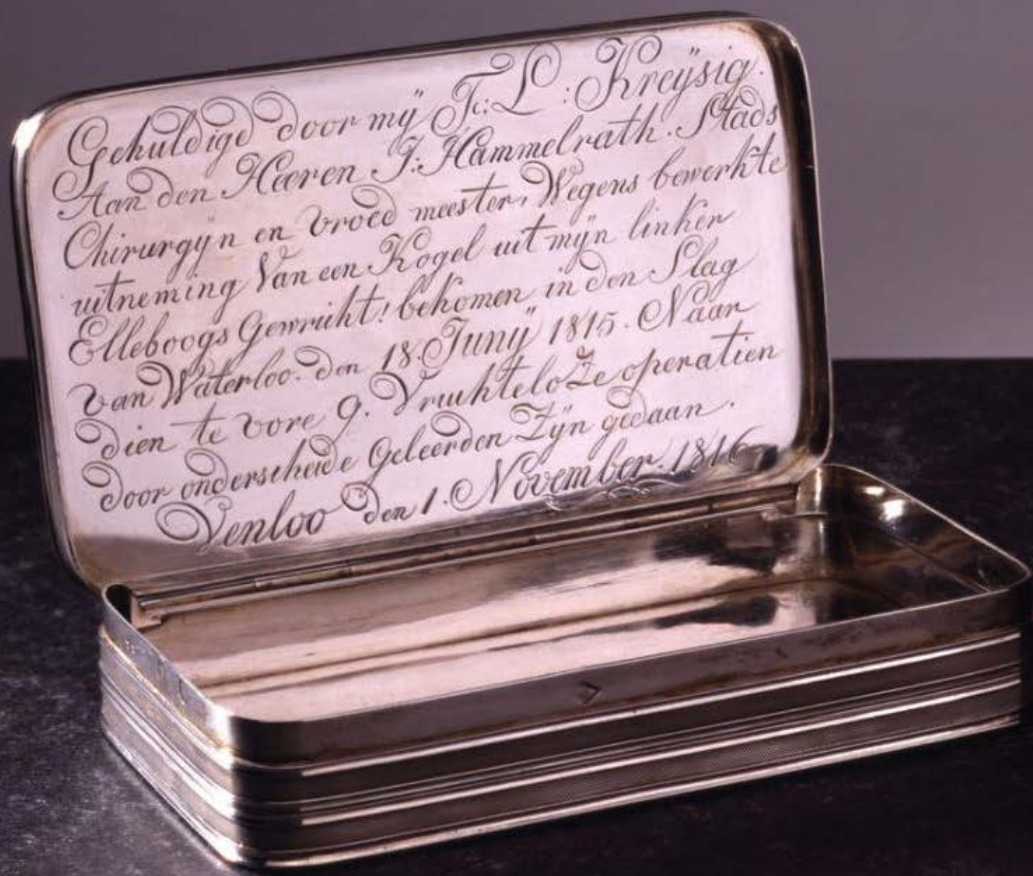 Gehuldigd door mÿ F:L: Kreÿsig.
Aan den Heeren J: Hammelrath. Stads
Chirurgÿn en vroed meester, Wegens bewerkte
uitneming Van een Kogel uit mÿn linker
Elleboogs Gewricht! bekomen in den Slag
van Waterloo. den 18. Junÿ 1815. Naar
dien te vore 9. Vruchteloze operatien
door onderscheide Geleerden Zÿn gedaan.
Venloo den 1. November. 1816